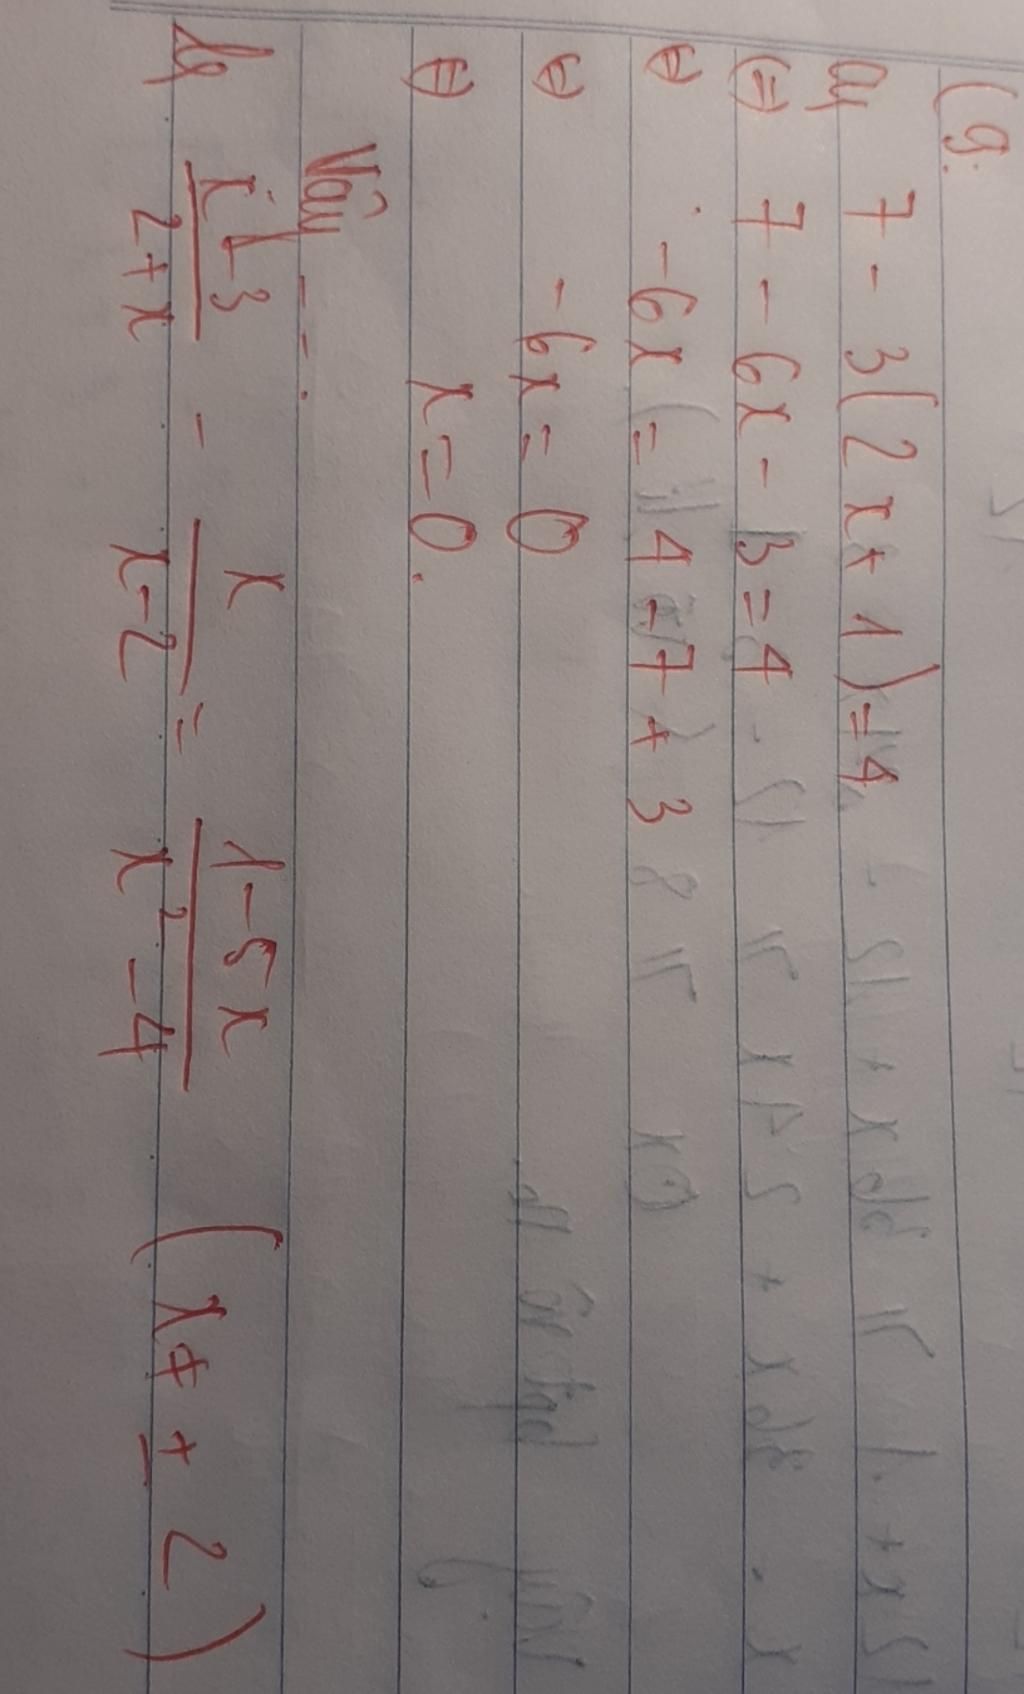 Cg.
a, 7 - 3(2x + 1) = 4
(=) 7 - 6x - 3 = 4
⇔ -6x = 4 - 7 + 3
⇔ -6x = 0
⇔ x = 0.
Vậy ---.
b, (x - 3)/(2 + x) - x/(x - 2) = (1 - 5x)/(x² - 4) (x ≠ ± 2)